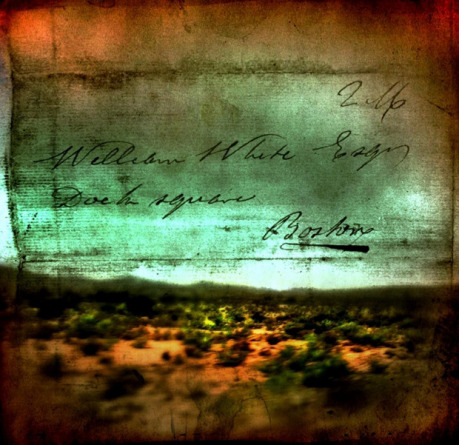 2.16
William White Esqr
Dock square
Boston